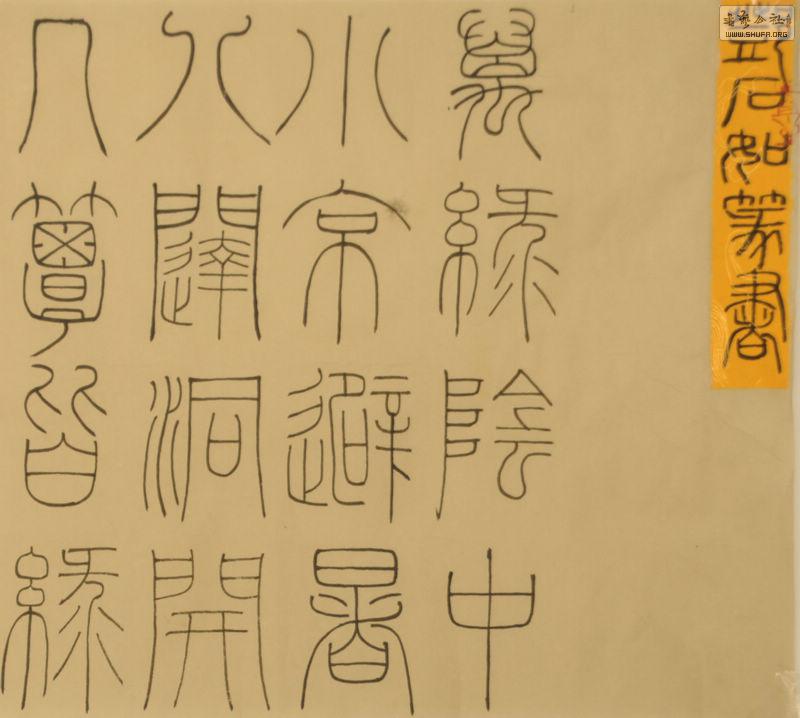 書藝公社
WWW.SHUFA.ORG
鄧石如篆書
萬綠陰中
小亭避暑
八闥洞開
几簟皆綠